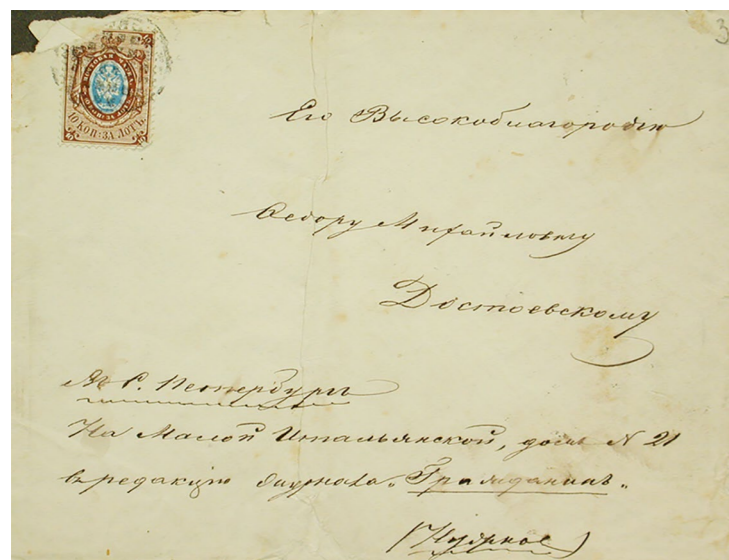 10 КОП: ЗА ЛОТЪ.
3
Его Высокоблагородію
Федору Михайловичу
Достоевскому
Въ С. Петербургъ
На Малой Итальянской, домъ N 21
въ редакцію журнала „Гражданинъ„
(Нужное)